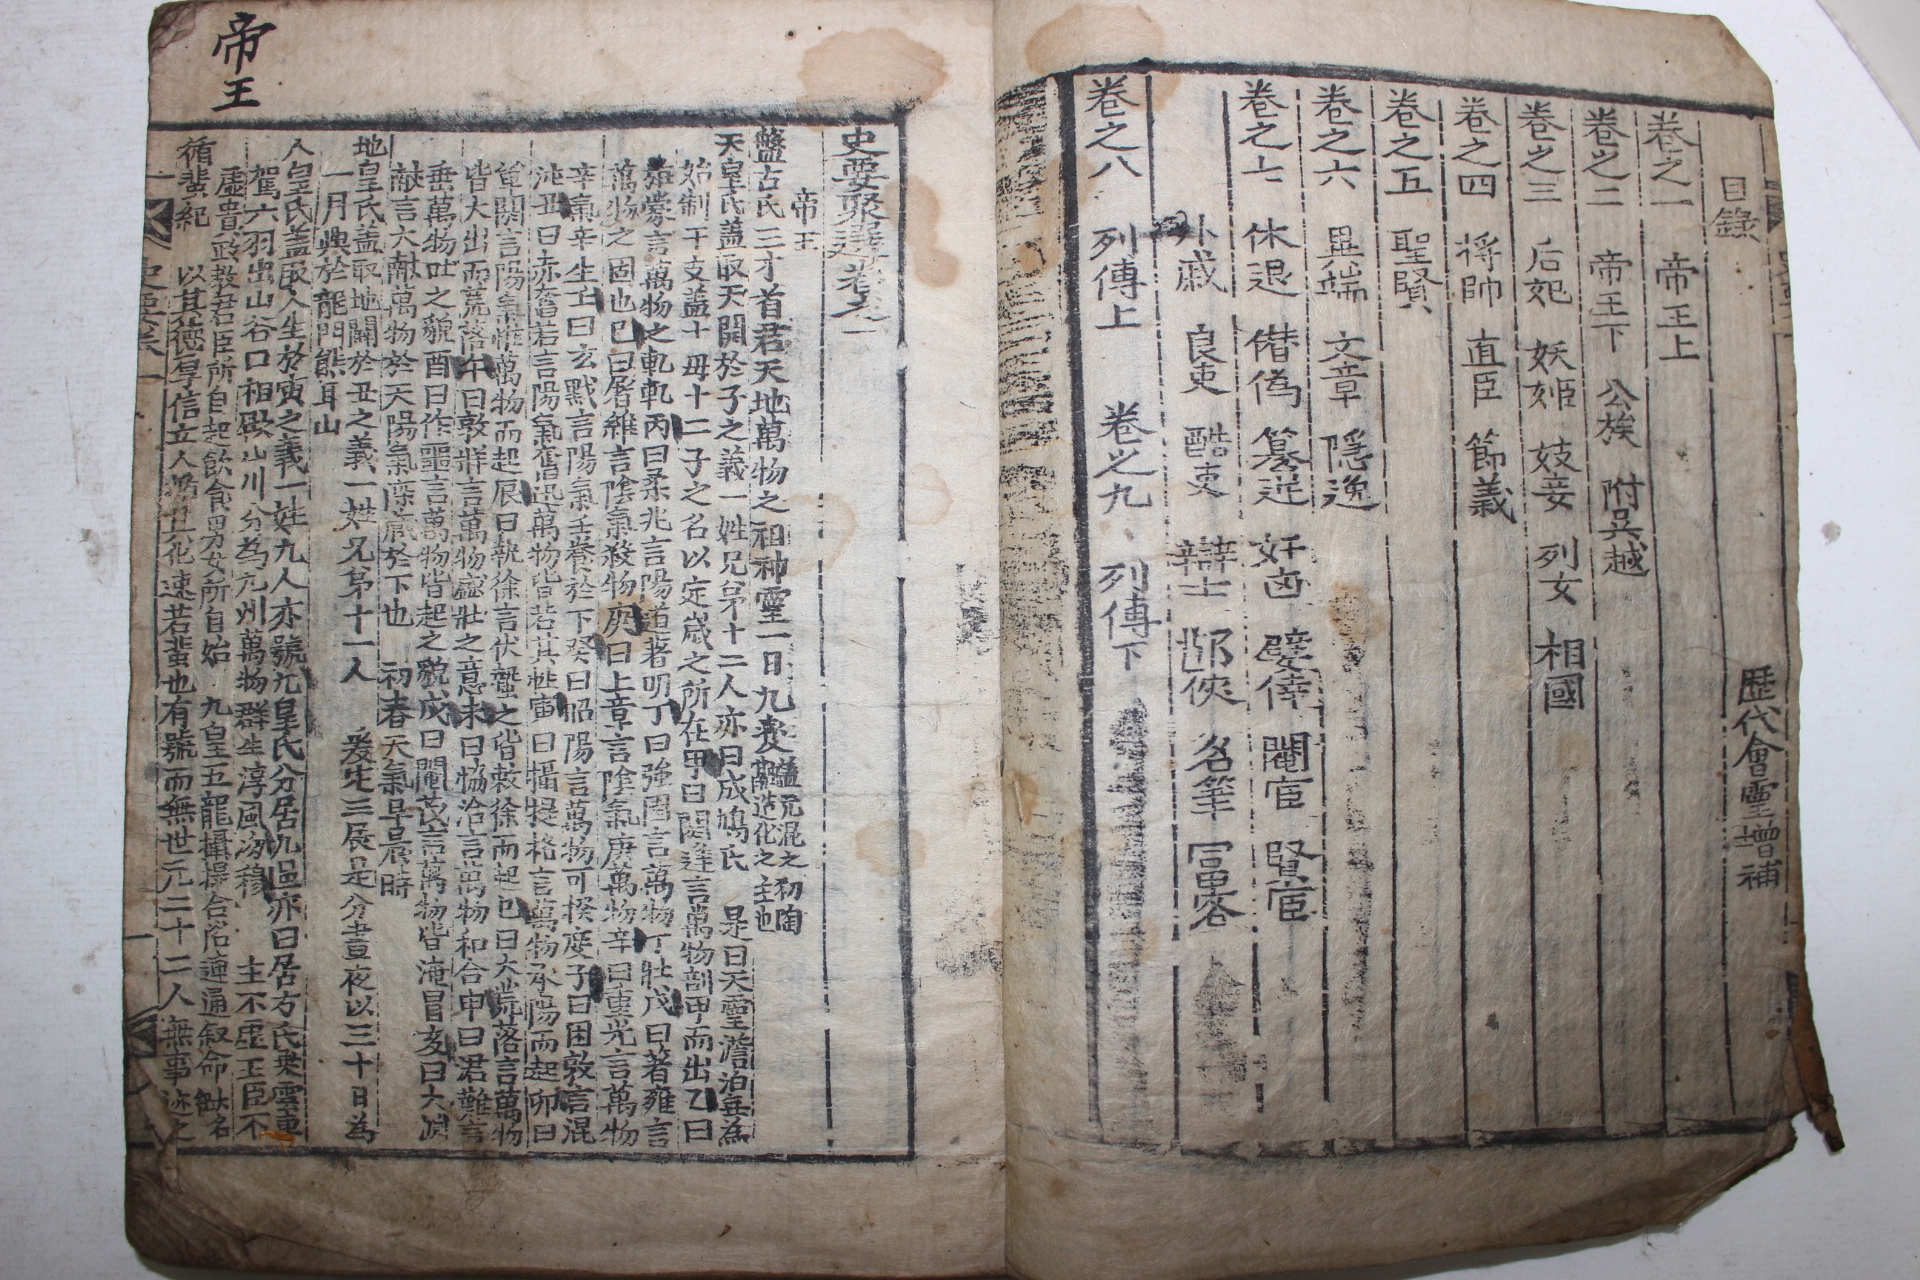 目錄 歷代會靈增補
卷之一 帝王上
卷之二 帝王下 公族 附吳越
卷之三 后妃 妖姬 妓妾 列女 相國
卷之四 將帥 直臣 節義
卷之五 聖賢
卷之六 異端 文章 隱逸
卷之七 休退 僭偽 簒逆 奸凶 嬖倖 閹宦 賢宦
外戚 良吏 酷吏 辯士 游俠 名筆 富客
卷之八 列傳上 卷之九 列傳下
帝王
史要聚選卷之一
帝王
盤古氏三才首君天地萬物之祖神靈一日九變 盖元混之初陶融造化之主也
天皇氏盖取天開於子之義一姓兄弟十二人亦曰成鳩氏 是曰天靈澹泊無為
始制干支盖十母十二子之名以定歲之所在甲曰閼逢言萬物剖甲而出乙曰
旃蒙言萬物之軋軋丙曰柔兆言陽道著明丁曰強圉言萬物丁壯戊曰著雍言
萬物之固也己曰屠維言陰氣殺物庚曰上章言陰氣庚萬物辛曰重光言萬物
辛氣辛生壬曰玄黓言陽氣壬養於下癸曰昭陽言萬物可揆度子曰困敦言混
沌丑曰赤奮若言陽氣奮迅萬物皆若其性寅曰攝提格言萬物承陽而起卯曰
單閼言陽氣推萬物而起辰曰執徐言伏蟄之皆敕徐而起巳曰大荒落言萬物
皆大出而荒落午曰敦牂言萬物盛壯之意未曰協洽言萬物和合申曰涒灘言
垂萬物吐之貌酉曰作噩言萬物皆起之貌戌曰閹茂言萬物皆淹冒亥曰大淵
獻言大獻萬物於天陽氣深藏於下也 初春天氣早晨時
地皇氏盖取地闢於丑之義一姓兄弟十一人 爰定三辰是分晝夜以三十日為
一月興於龍門熊耳山
人皇氏盖取人生於寅之義一姓九人亦號九皇氏分居九區亦曰居方氏乘雲車
駕六羽出山谷口相厥山川分為九州萬物群生淳風沕穆 主不虛王臣不
虛貴政教君臣所自起飲食男女所自始 九皇五龍攝提合洛連通叙命
循蜚紀 以其德厚信立人 化速若蜚也有號而無世元二十二人無事迹之